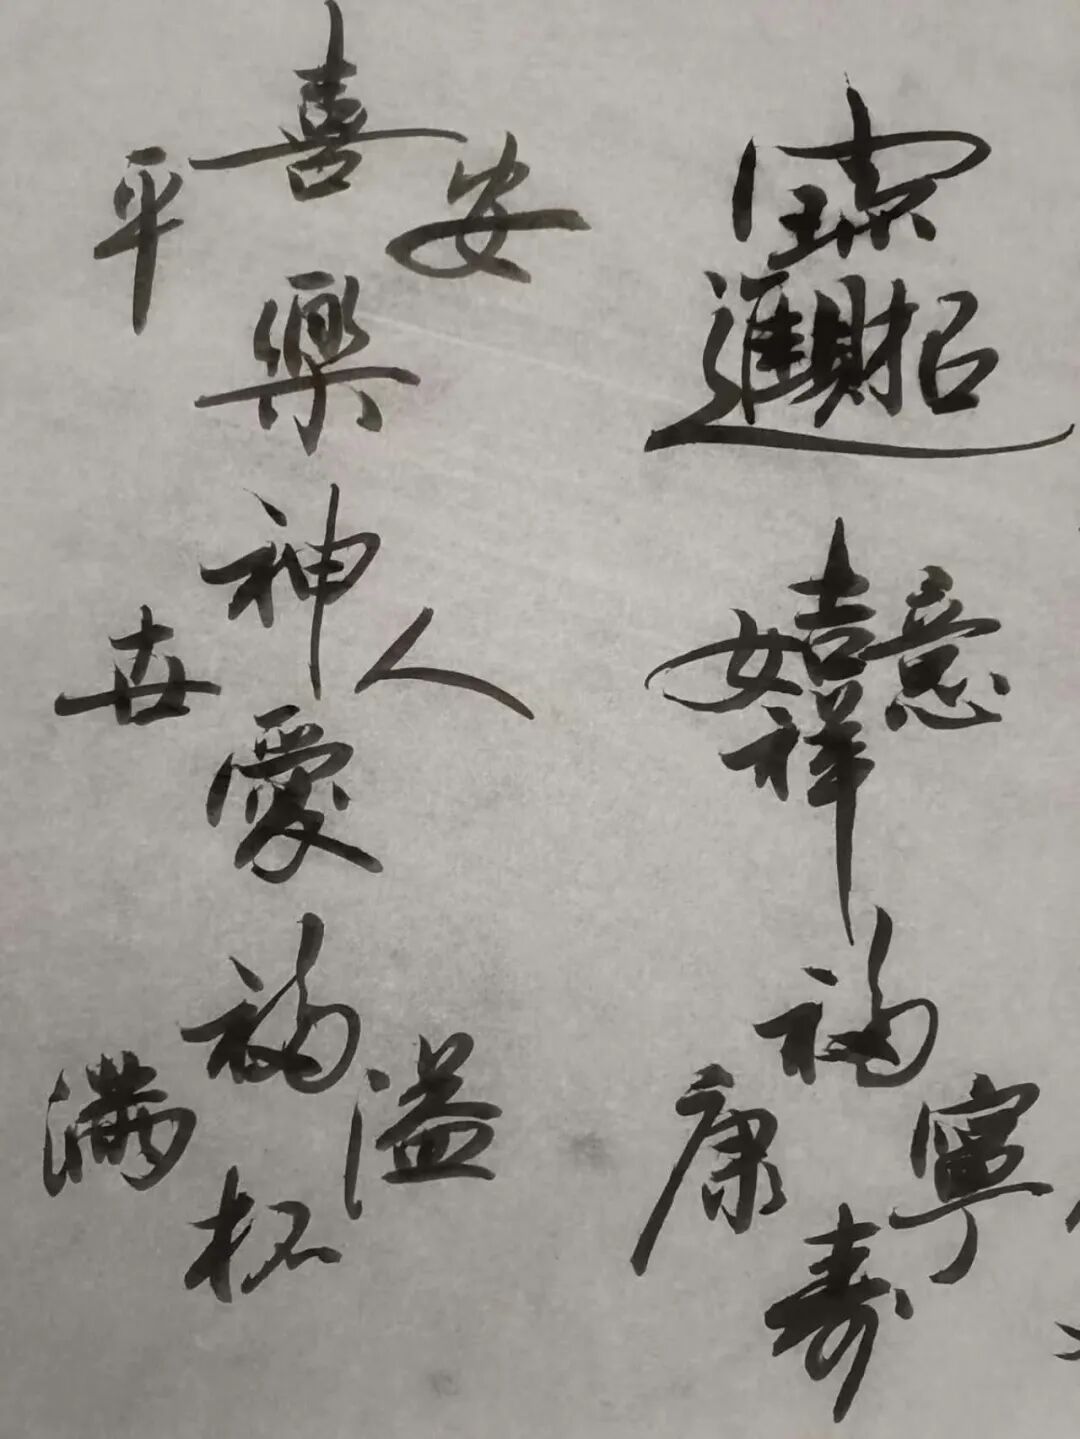 平安喜樂
神愛世人
福杯满溢
招財進寶
吉祥如意
福寿康寧